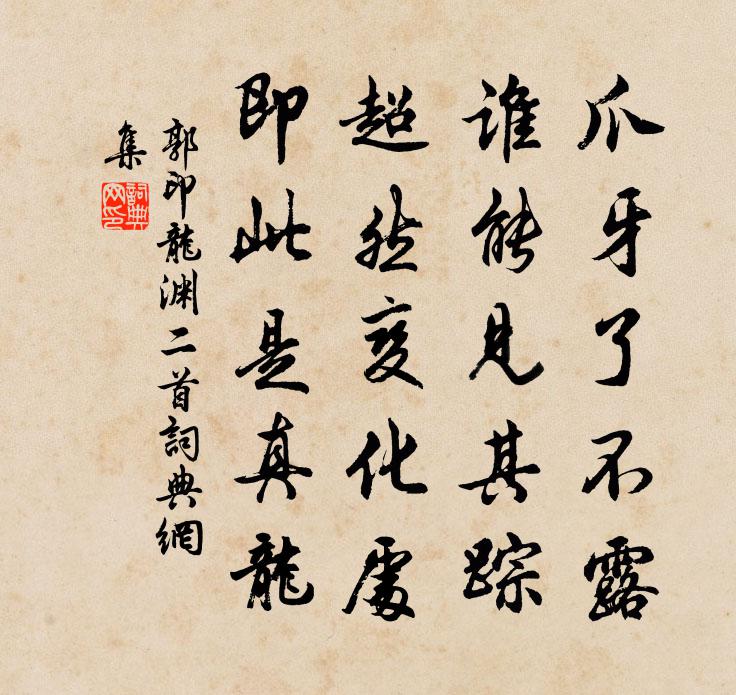 爪牙了不露
谁能见其踪
超然变化處
即此是真龍
郭印龍渊二首詞典網
集
詞典网印